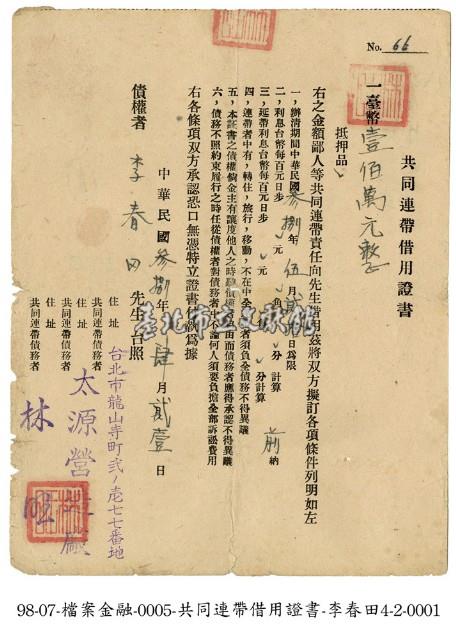 No. 66
共同連帶借用證書
一臺幣壹佰萬元整
抵押品
右之金額鄙人等共同連帶責任向先生借用茲將双方擬訂各項條件列明如左
一，辦清期間中華民國叁捌年伍月貳 日為限
二，利息台幣每百元日步 元 角 分計算 前納
三，延帶利息台幣每百元日步 元 分計算
四，連帶者中有，轉住，旅行，移動，不在中全 者須負全債務不得異議
五，本証書之債權倘金主有讓度他人之時 債 由而債務者應得承認不得異議
六，債務不照約束履行之時任從債權者對債務者 不論何人須要負擔全部訴訟費用
右各條項双方承認恐口無憑特立證書 納為據
中華民國叁捌年肆月貳壹日
債權者 李春田 先生台照
住址 台北市龍山寺町弐ノ壱七七番地
共同連帶債務者 太源營造廠
住址
共同連帶債務者 林旺
住址
共同連帶債務者
臺北市立文獻館
98-07-檔案金融-0005-共同連帶借用證書-李春田4-2-0001